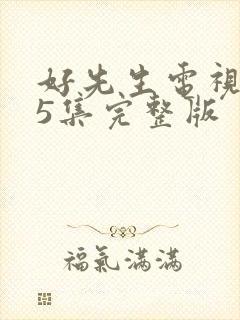 好先生電視
5集完整版
福氣滿滿